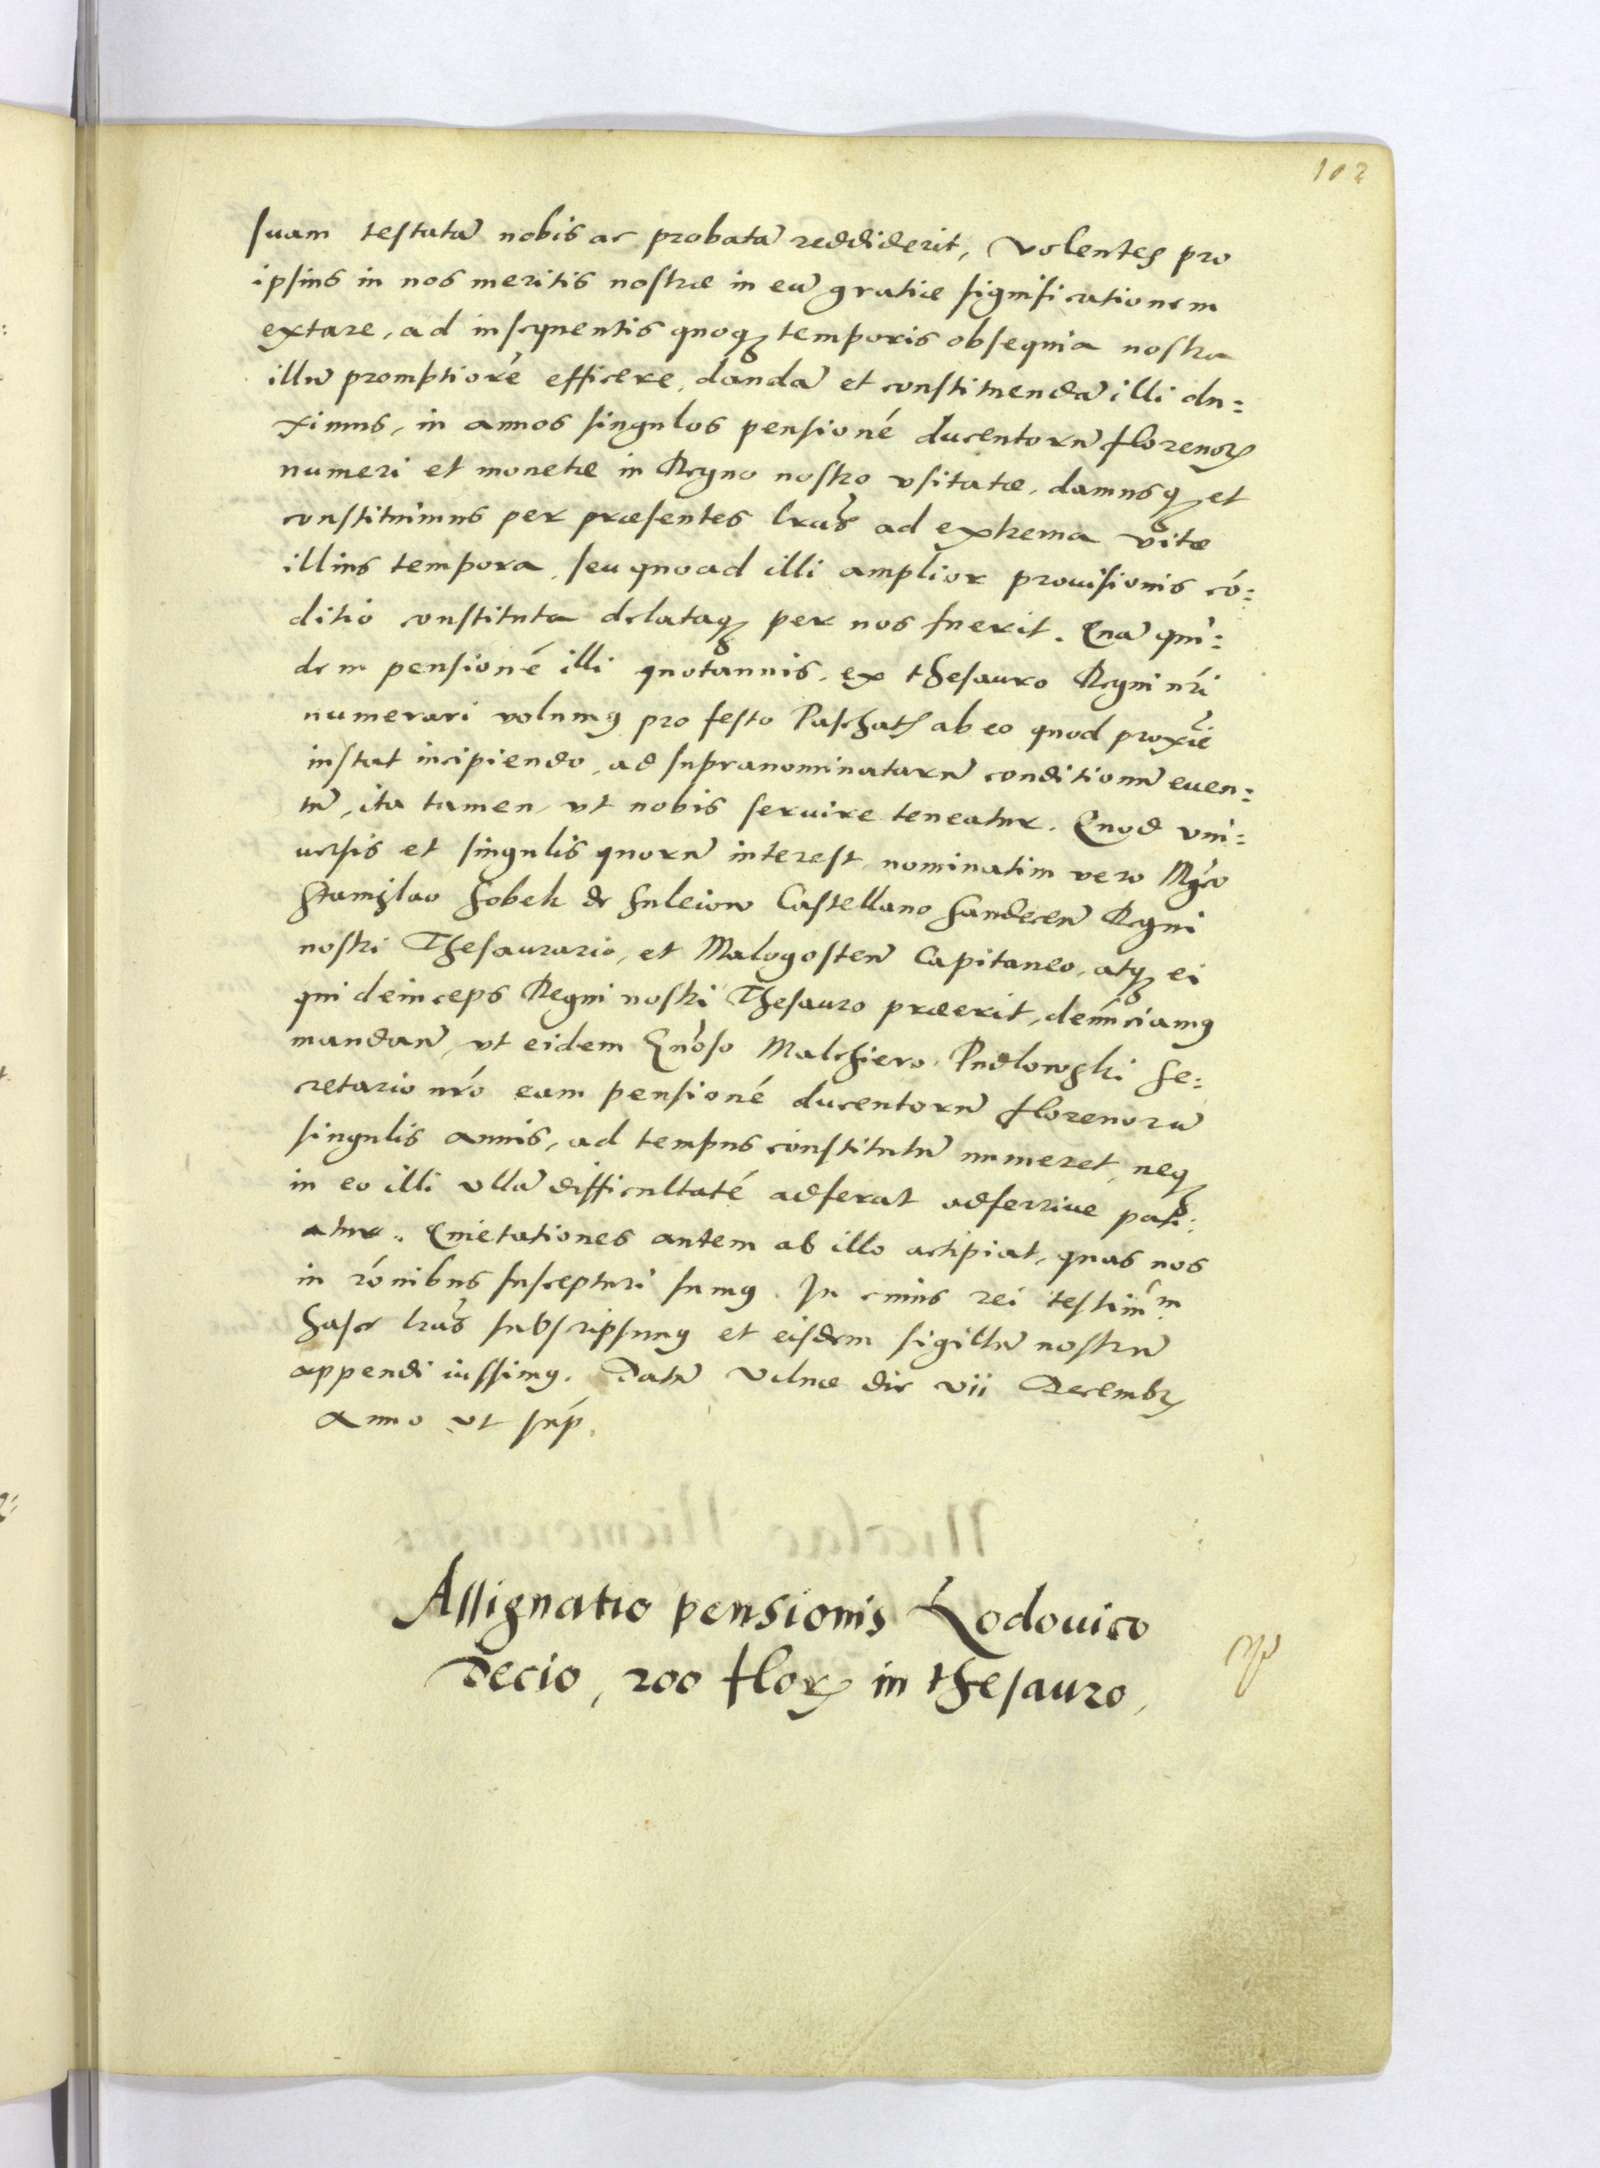 102
suam testatā nobis ac probatā reddiderit, volentes pro
ipsius in nos meritis nostræ in eū gratiæ significationem
extare, ad insequentis quoq; temporis obsequia nostra
illū promptiorē efficere, dandā et constituendā illi du=
ximus, in annos singulos pensionē ducentorū florenoꝝ
numeri et monetæ in Regno nostro vsitatæ, damusq; et
constituimus per præsentes lr̄as ad extrema vitæ
illius tempora, seu quoad illi amplior prouisionis cō=
ditio constituta delataq; per nos fuerit. Quā qui=
dem pensionē illi quotannis, ex thesauro Regni nr̄i
numerari volumꝯ pro festo Paschatꝭ ab eo quod proxīe
instat incipiendo, ad supranominatarū conditionū euen=
tū, ita tamen, vt nobis seruire teneatur. Quod vni=
uersis et singulis quorū interest, nominatim vero Mgco
Stanislao Sobek de Suleiow Castellano Sandecen̄ Regni
nostri Thesaurario, et Malogosten̄ Capitaneo, atq; ei
qui deinceps Regni nostri Thesauro præerit, denūciamꝯ
mandan̄, vt eidem Gnōso Malchiero Pudlowski Se=
cretario nr̄o eam pensionē ducentorū florenorū
singulis annis, ad tempus constitutū numeret, neq;
in eo illi vllā difficultatē adferat adferriue pati=
atur. Quietationes autem ab illo accipiat, quas nos
in rōnibus suscepturi sumꝯ. In cuius rei testim̄m
hasce lr̄as subscripsimꝯ et eisdem sigillū nostrū
appendi iussimꝯ. Datū Vilnæ die vii Decembꝝ
Anno vt sup̄.
Assignatio pensionis Lodouico
Decio, 200 floꝝ in thesauro,